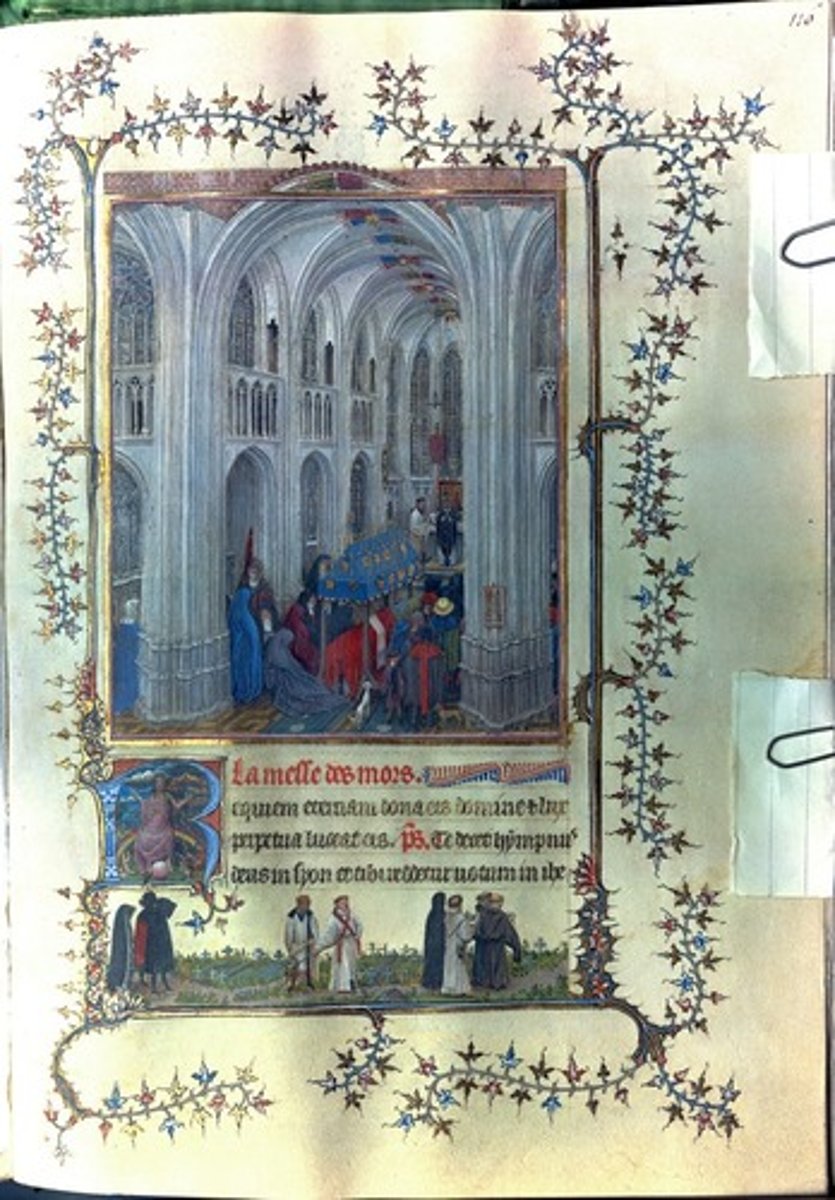 116
La messe des mors.
Requiem eternam dona eis domine & lux
perpetua luceat eis. ps. Te decet hympnus
deus in syon et tibi reddetur votum in ihe